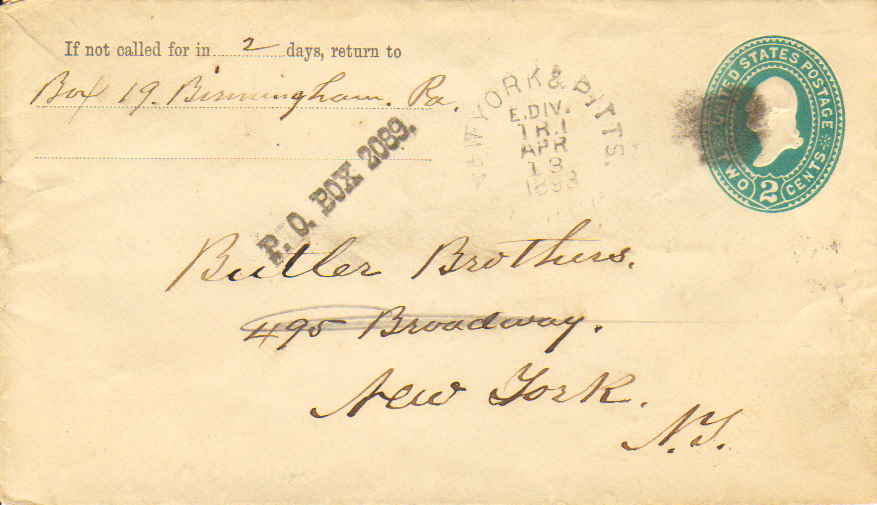 If not called for in 2 days, return to
Box 19. Birmingham. Pa.
P. O. BOX 2089.
NEW YORK & PITTS.
E. DIV.
TR. 1
APR
13
1893
UNITED STATES POSTAGE
TWO 2 CENTS
Butler Brothers.
495 Broadway.
New York.
N.Y.